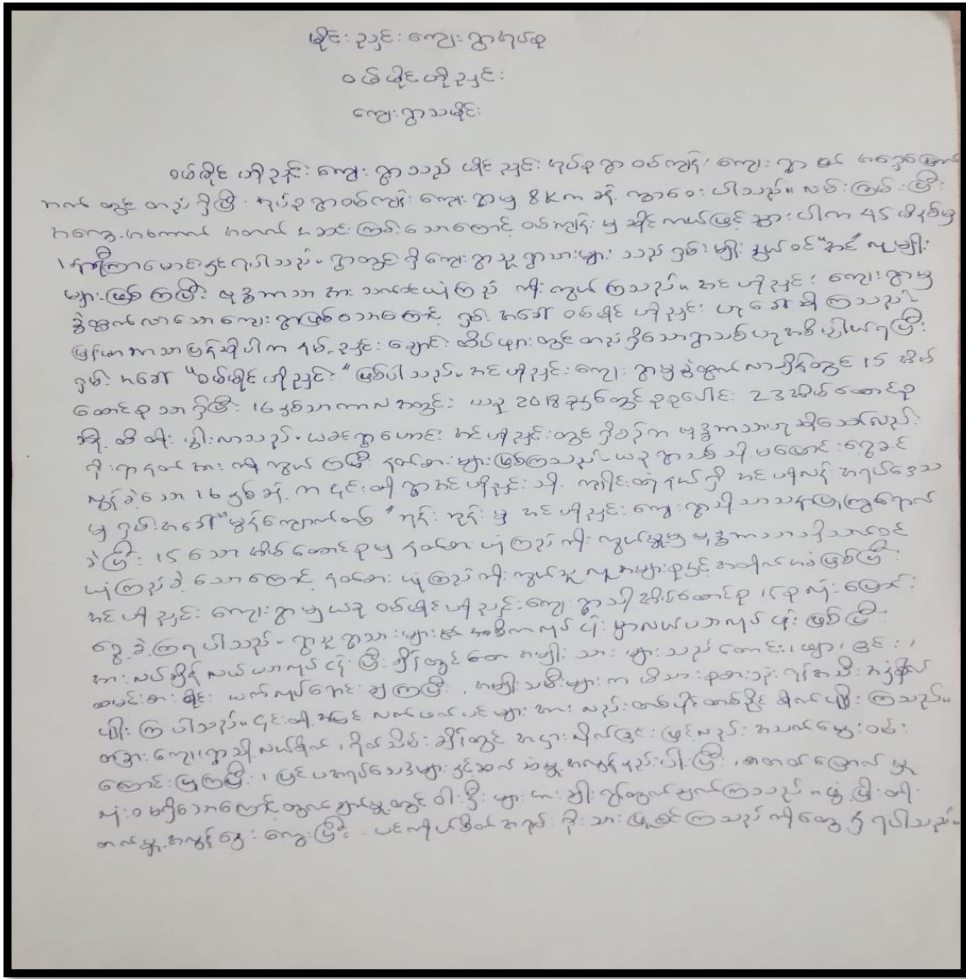 မိုင်းညှင်းကျေးရွာအုပ်စု
ဝမ်မိုင်ဟိုညှင်း
ကျေးရွာသမိုင်း
ဝမ်မိုင်ဟိုညှင်းကျေးရွာသည် မိုင်းညှင်းအုပ်စု ရွာဝမ်ကျန်းကျေးရွာ
ဘက်တွင်တည်ရှိပြီး အုပ်စုရွာဝမ်ကျန်းကျေးရွာမှ 8Km ခန့် ကွာဝေးပါသည်။ လမ်းကြမ်းပြီး
အကွေ့အကောက် အတက်အဆင်းကြမ်းသောကြောင့် ဝမ်ကျန်းမှ ဆိုင်ကယ်ဖြင့် သွားပါက 45 မိနစ်မှ
၁နာရီကြာမောင်းနှင်ရပါသည်။ ရွာတွင်ရှိကျေးရွာသူရွာသားများသည် ရှမ်းမျိုးနွယ်ဝင် "အင်" လူမျိုး
များဖြစ်ကြပြီး ဗုဒ္ဓဘာသာအား သက်ဝင်ယုံကြည် ကိုးကွယ်ကြသည်။ အင်ဟိုညှင်းကျေးရွာမှ
ခွဲထွက်လာသောကျေးရွာဖြစ်သောကြောင့် ရှမ်းအခေါ် ဝမ်မိုင်ဟိုညှင်းဟု ခေါ်ဆိုကြသည်။
မြန်မာဘာသာပြန်ဆိုပါက နမ့်ညှင်းချောင်းထိပ်ဖျားတွင်တည်ရှိသောရွာသစ်ဟု အဓိပ္ပါယ်ရပြီး
ရှမ်းအခေါ် "ဝမ်မိုင်ဟိုညှင်း" ဖြစ်ပါသည်။ အင်ဟိုညှင်းကျေးရွာမှခွဲထွက်လာချိန်တွင် 15 အိမ်
ထောင်စုသာရှိပြီး 16 နှစ်သာကာလအတွင်း ယခု 2018 ခုနှစ်တွင် စုစုပေါင်း 23 အိမ်ထောင်စု
သို့ တိုးပွါးလာသည်။ ယခင်ရွာဟောင်း အင်ဟိုညှင်းတွင်ရှိစဉ်က ဗုဒ္ဓဘာသာဟုဆိုသော်လည်း
ရိုးရာနတ်အား ကိုးကွယ်ကြပြီး နတ်စားများဖြစ်ကြသည်။ ယခုရွာသစ်သို့မပြောင်းရွှေ့ခင်
လွန်ခဲ့သော 16 နှစ်ခန့်က ၎င်းတို့ရွာအင်ဟိုညှင်းသို့ ကျိုင်းတုံနယ်ရှိ အရပ်ဒေသ
မှ ရှမ်းအခေါ် ဘုန်းဘုန်းမှ အင်ဟိုညှင်းကျေးရွာသို့သာသနာပြုကြွရောက်
ခဲ့ပြီး 15 သောအိမ်ထောင်စုမှ နတ်စားယုံကြည်ကိုးကွယ်မှုမှ ဗုဒ္ဓဘာသာသို့သက်ဝင်
ယုံကြည်ခဲ့သောကြောင့် နတ်စားယုံကြည်ကိုးကွယ်သူလူအများစုနှင့်
အင်ဟိုညှင်းကျေးရွာမှယခု ဝမ်မိုင်ဟိုညှင်းကျေးရွာသို့အိမ်ထောင်စု ၁၅စုလုံးပြောင်း
ရွှေ့ခဲ့ကြရပါသည်။ ရွာသူရွာသားများ အဓိကလုပ်ငန်းမှာလယ်ယာလုပ်ငန်းဖြစ်ပြီး
အားလပ်ချိန် လယ်ယာလုပ်ငန်းပြီးချိန်တွင်တော့ အမျိုးသားများသည် တောင်း၊ ဖျာ၊
ထမင်းစားခုံ ယက်လုပ်ရောင်းချကြပြီး၊ အမျိုးသမီးများက
ပျိုးကြပါသည်။ ၎င်းတို့အပြင် လက်ဖက်ပင်များအားလည်း တစ်ပိုင်တစ်နိုင် စိုက်ပျိုးကြသည်။
တခြားကျေးရွာသို့လယ်စိုက်၊ ရိတ်သိမ်းချိန်တွင် အငှားလိုက်ခြင်းဖြင့်လည်း အသက်မွေးဝမ်း
ကျောင်းပြုကြပြီး၊ ပြင်ပအရပ်ဒေသများနှင့်ဆက်ဆံမှု အလွန်နည်းပါးပြီး၊ စာတတ်မြောက်မှု
လုံးဝမရှိသောကြောင့်
တက်မှုအလွန်နှေးကွေးပြီး၊ ပင်ကိုယ်စိတ်အရင်း ရိုးသားဖြူစင်ကြသည်ကိုတွေ့ရှိရပါသည်။